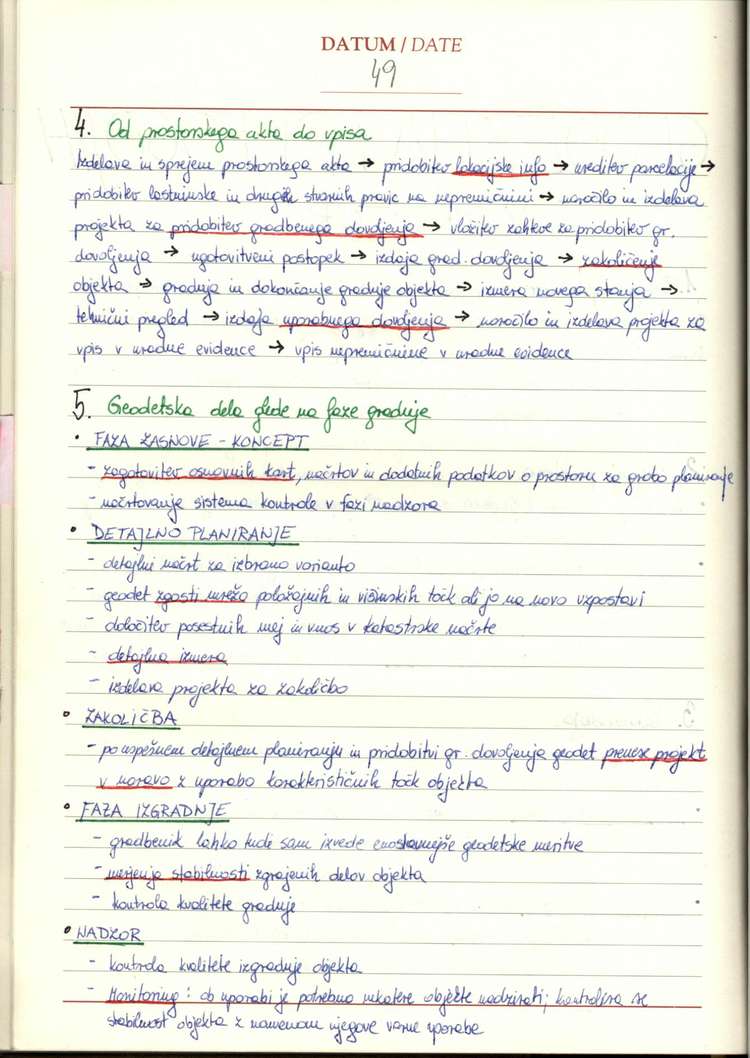 DATUM / DATE
49
4. Od prostorskega akta do vpisa
Izdelava in sprejem prostorskega akta → pridobitev lokacijske info → ureditev parcelacije →
pridobitev lastninske in drugih stvarnih pravic na nepremičnini → naročilo in izdelava
projekta za pridobitev gradbenega dovoljenja → vložitev zahteve za pridobitev gr.
dovoljenja → ugotovitveni postopek → izdaja grad. dovoljenja → zakoličenje
objekta → gradnja in dokončanje gradnje objekta → izmera novega stanja →
tehnični pregled → izdaja uporabnega dovoljenja → naročilo in izdelava projekta za
vpis v uradne evidence → vpis nepremičnine v uradne evidence
5. Geodetska dela glede na faze gradnje
• FAZA ZASNOVE - KONCEPT
- zagotovitev osnovnih kart, načrtov in dodatnih podatkov o prostoru za grobo planiranje
- načrtovanje sistema kontrole v fazi nadzora
• DETAJLNO PLANIRANJE
- detajlni načrt za izbrano varianto
- geodet zgosti mrežo položajnih in višinskih točk ali jo na novo vzpostavi
- določitev posestnih mej in vnos v katastrske načrte
- detajlna izmera
- izdelava projekta za zakoličbo
• ZAKOLIČBA
- po uspešnem detajlnem planiranju in pridobitvi gr. dovoljenja geodet prenese projekt
v naravo z uporabo karakterističnih točk objekta
• FAZA IZGRADNJE
- gradbenik lahko tudi sam izvede enostavnejše geodetske meritve
- merjenja stabilnosti zgrajenih delov objekta
- kontrola kvalitete gradnje
• NADZOR
- kontrola kvalitete izgradnje objekta
- Monitoring: ob uporabi je potrebno nekatere objekte nadzirati; kontrolira se
stabilnost objekta z namenom njegove varne uporabe